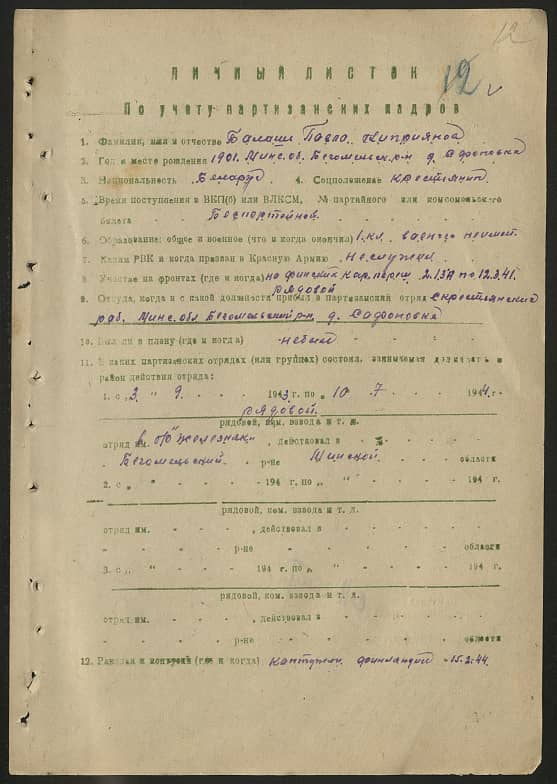 12
ЛИЧНЫЙ ЛИСТОК
12
По учету партизанских кадров
1. Фамилия, имя и отчестве Балаш Павло Киприянов
2. Год и место рождения 1901. Минс. об. Бегомльск. р-н д. Сафоновка
3. Национальность Беларус 4. Соцположение крестянин
5. Время поступления в ВКП(б) или ВЛКСМ, № партийного или комсомольского
билета Беспортейнов.
6. Образование: общее и военное (что и когда окончил) 1. кл.
7. Каким РВК и когда призван в Красную Армию Неслужил
8. Участие на фронтах (где и когда) на финский
рядовой
9. Откуда, когда и с какой должности прибыл в партизанский отряд
раб. Минс. обл Бегомльский р-н. д. Сафоновка
10. Был ли в плену (где и когда) небыл
11. В каких партизанских отрядах (или группах) состоял, занимаемая должность и
район действия отряда:
1. с „3 " 9. 1943 г. по „ 10 7 1944 г.
рядовой.
рядовой, ком. взвода и т. д.
отряд им. Железняк , действовал в
Бегомльский. р-не Минской. области
2. с „ " 194 г. по „ " 194 г.
рядовой, ком. взвода и т. д.
отряд им. , действовал в
р-не области
3. с „ " 194 г. по „ " 194 г.
рядовой, ком. взвода и т. д.
отряд им. , действовал в
р-не области
12. Ранения и контузии (где и когда) контужен финландий 15.2.44.